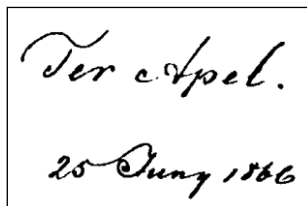 Ter Apel.
25 Juny 1866